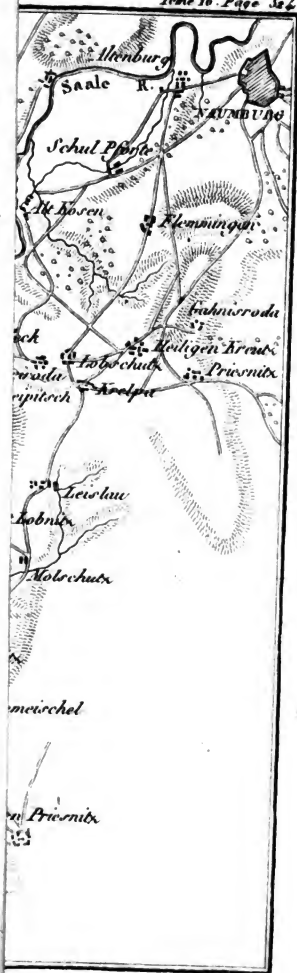 Tome 16. Page 326
Altenburg
Saale R.
NAUMBURG
Schul Pforte
Alt Kosen
Flemmingen
Gahnisroda
Heiligen Kreutz
Lobschutz
Priesnitz
iroda
Krelpa
eipitsch
Leislau
Lobnitz
Molschutz
meischel
en Priesnitz